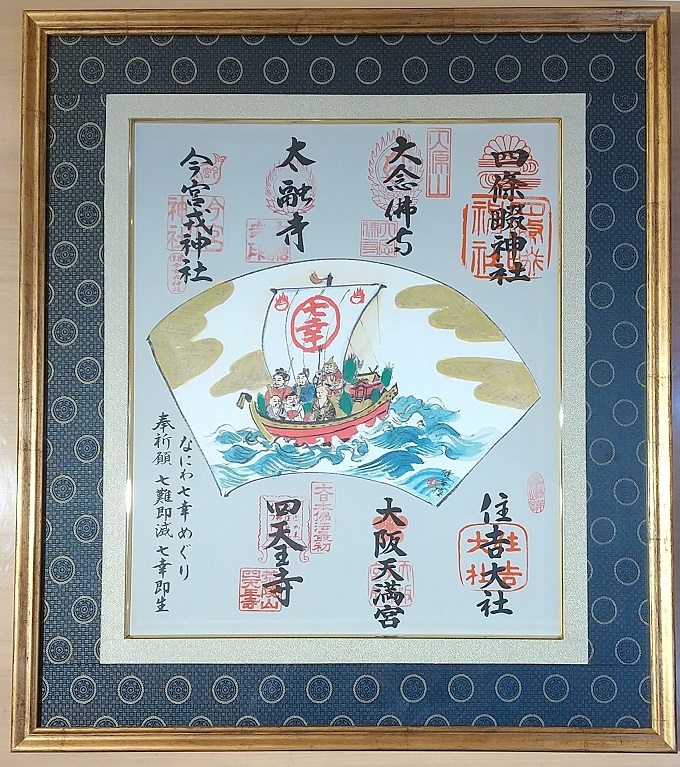 四條畷神社
大念佛寺
太融寺
今宮戎神社
七幸
住吉大社
大阪天満宮
四天王寺
大日本佛法最初
なにわ七幸めぐり
奉祈願 七難即滅 七幸即生